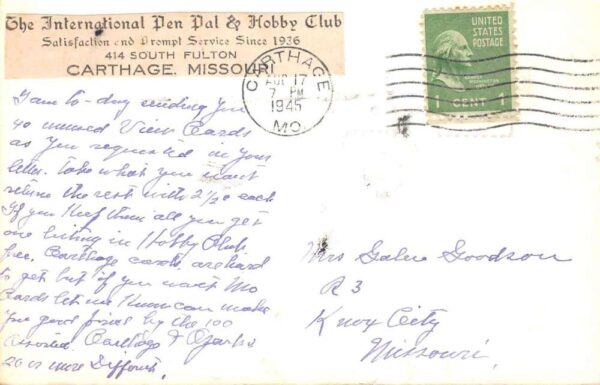 The International Pen Pal & Hobby Club
Satisfaction and Prompt Service Since 1936
414 SOUTH FULTON
CARTHAGE, MISSOURI
CARTHAGE
AUG 17
7 PM
1945
MO.
UNITED
STATES
POSTAGE
GEORGE
WASHINGTON
1 CENT 1
I am to-day sending you
40 unused View Cards
as you requested in your
letter. Take what you want
return the rest with 2½¢ each
If you Keep them all you get
one listing in Hobby Club
free. Carthage cards are hard
to get but if you want Mo
Cards let me Know can make
you good prices by the 100
assorted. Carthage & Ozarks
20 or more Different.
Mrs Galen Goodson
R 3
Knox City
Missouri.